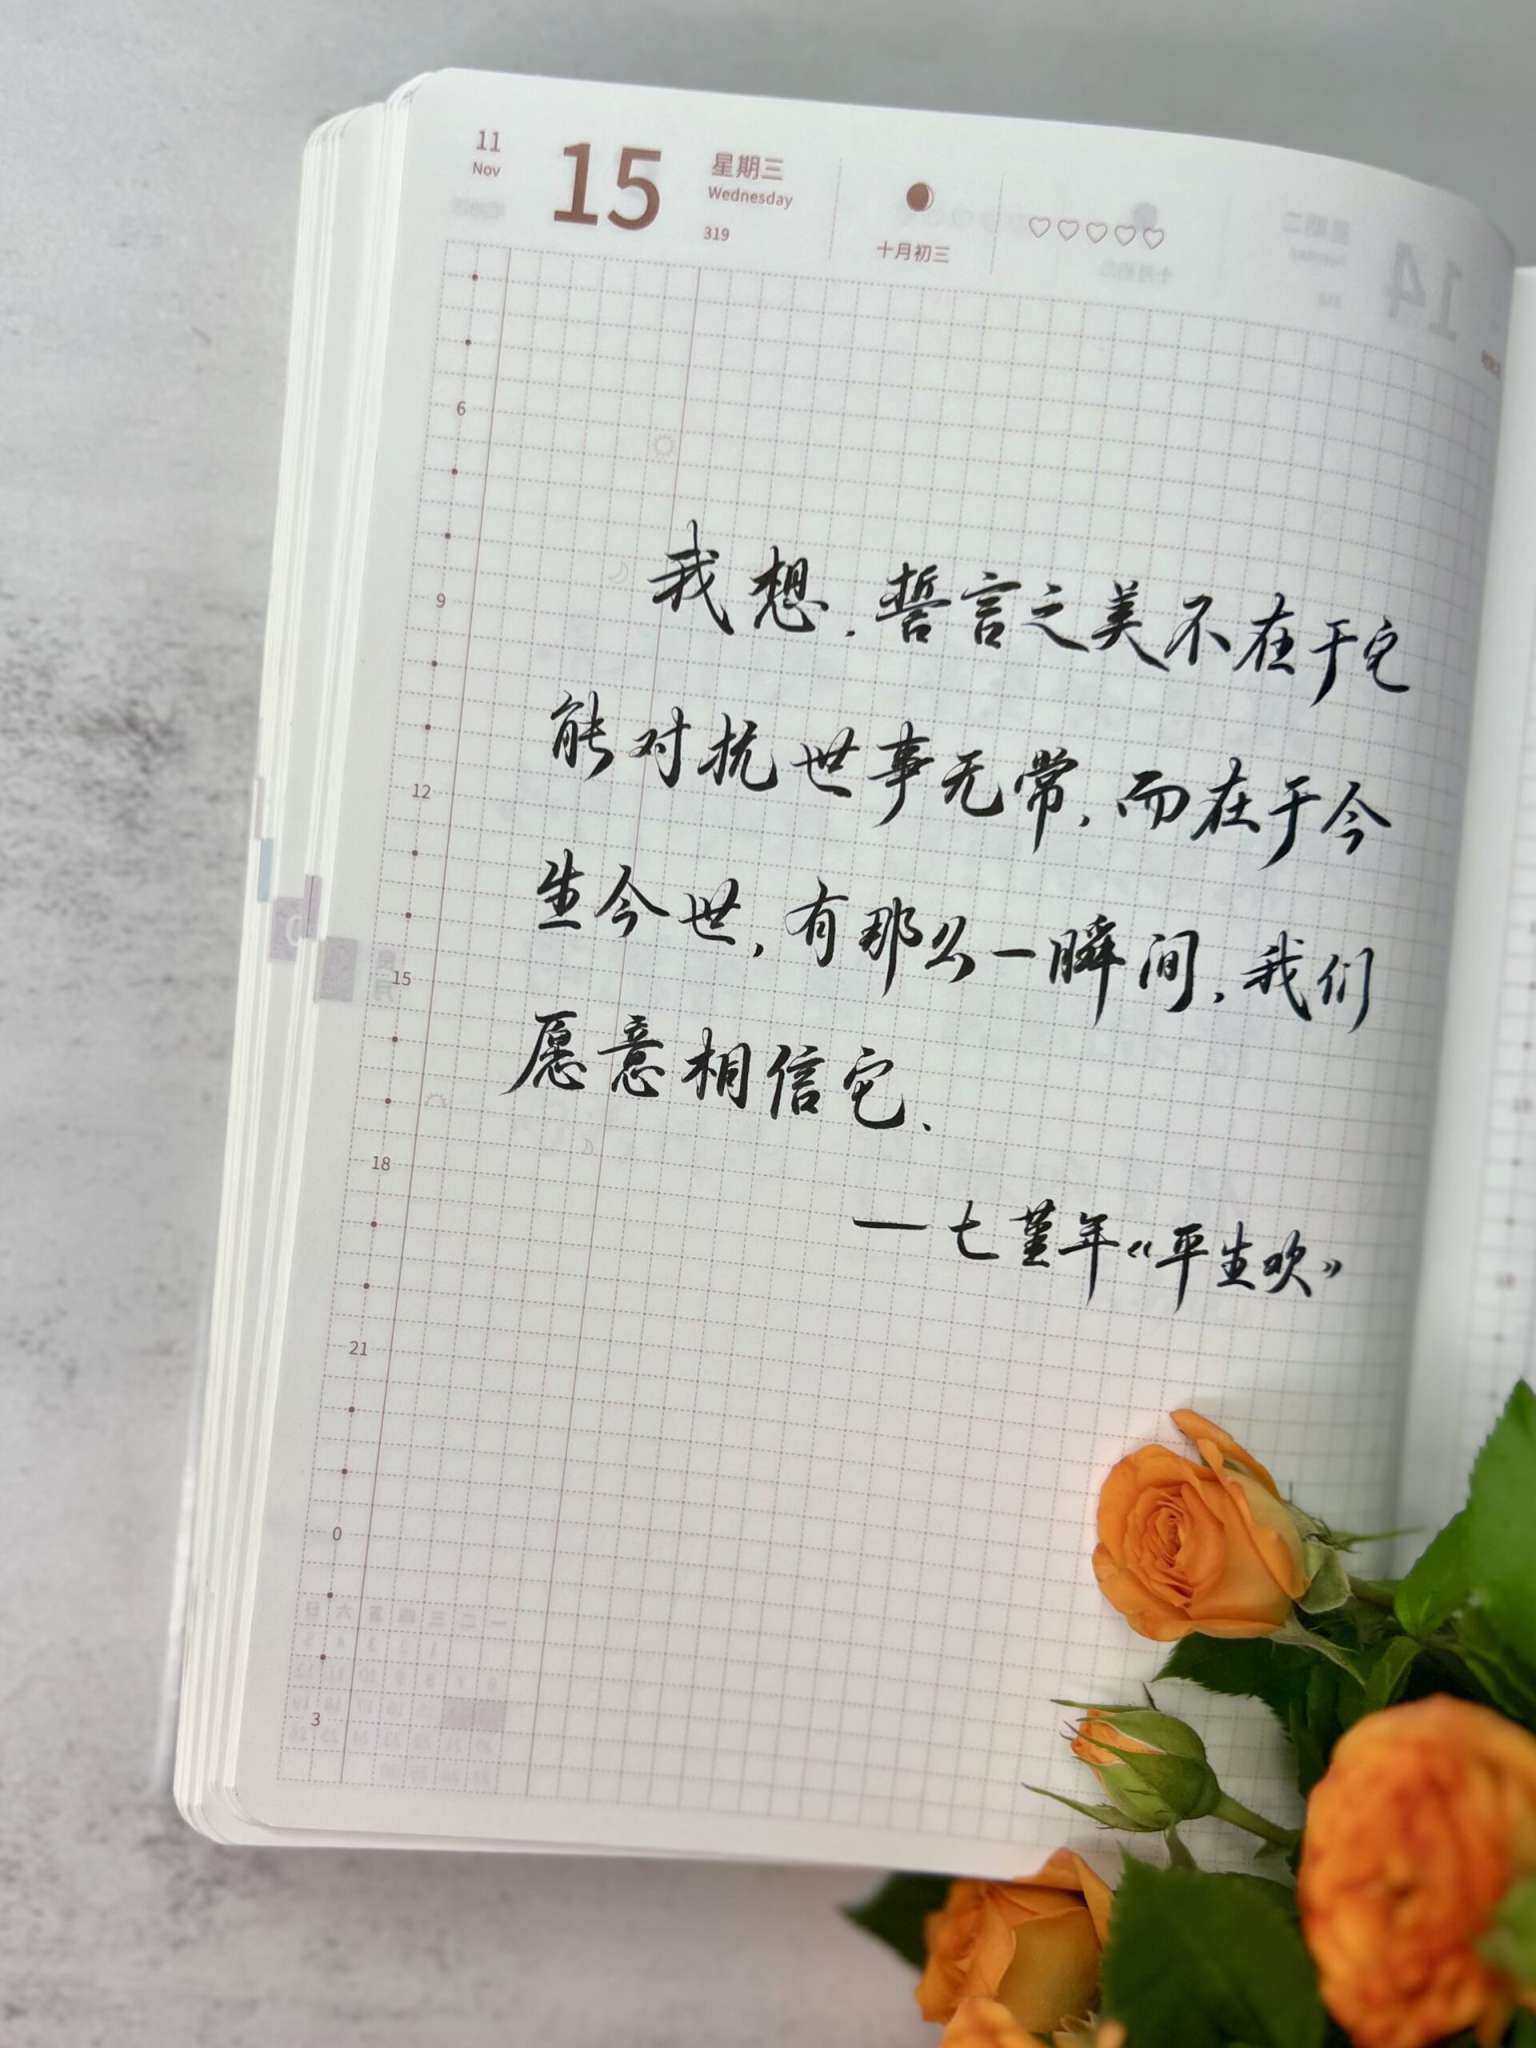 11
Nov
15
星期三
Wednesday
319
十月初三
6
9
12
15
18
21
0
3
我想,誓言之美不在于它
能对抗世事无常,而在于今
生今世,有那么一瞬间,我们
愿意相信它.
—七堇年《平生欢》